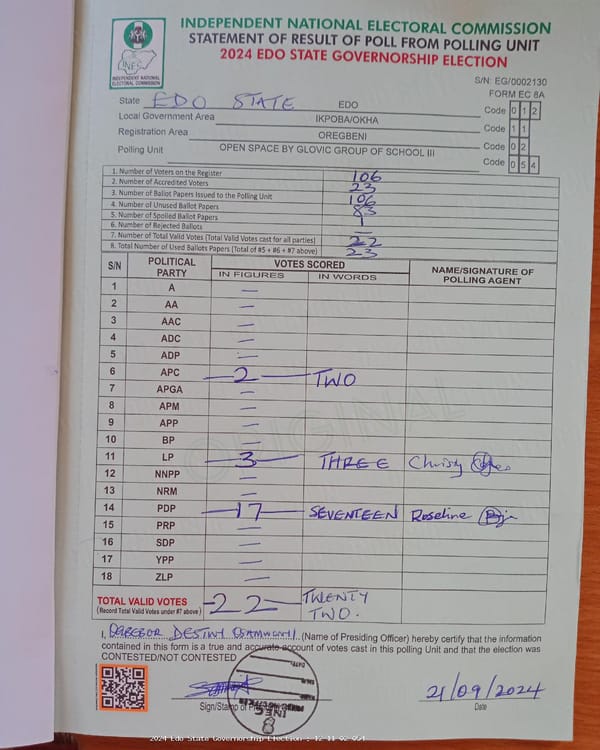 INDEPENDENT NATIONAL ELECTORAL COMMISSION
STATEMENT OF RESULT OF POLL FROM POLLING UNIT
2024 EDO STATE GOVERNORSHIP ELECTION
INEC
INDEPENDENT NATIONAL ELECTORAL COMMISSION
S/N: EG/0002130
FORM EC 8A
State EDO STATE EDO Code 0 1 2
Local Government Area IKPOBA/OKHA Code 1 1
Registration Area OREGBENI Code 0 2
Polling Unit OPEN SPACE BY GLOVIC GROUP OF SCHOOL III Code 0 5 4
1. Number of Voters on the Register 106
2. Number of Accredited Voters 23
3. Number of Ballot Papers Issued to the Polling Unit 106
4. Number of Unused Ballot Papers 83
5. Number of Spoiled Ballot Papers 1
6. Number of Rejected Ballots —
7. Number of Total Valid Votes (Total Valid Votes cast for all parties) 22
8. Total Number of Used Ballots Papers (Total of #5 + #6 + #7 above) 23
S/N POLITICAL PARTY VOTES SCORED NAME/SIGNATURE OF POLLING AGENT
IN FIGURES IN WORDS
1 A —
2 AA —
3 AAC —
4 ADC —
5 ADP —
6 APC 2 TWO
7 APGA —
8 APM —
9 APP —
10 BP —
11 LP 3 THREE Christy
12 NNPP —
13 NRM —
14 PDP 17 SEVENTEEN Roseline
15 PRP —
16 SDP —
17 YPP —
18 ZLP —
ORIGINAL
TOTAL VALID VOTES 22 TWENTY TWO.
(Record Total Valid Votes under #7 above)
I, DESTINY (Name of Presiding Officer) hereby certify that the information
contained in this form is a true and accurate account of votes cast in this polling Unit and that the election was
CONTESTED/NOT CONTESTED
21/09/2024
Sign/Stamp of Date
INEC
8
2024 Edo State Governorship Election : 12-11-02-054